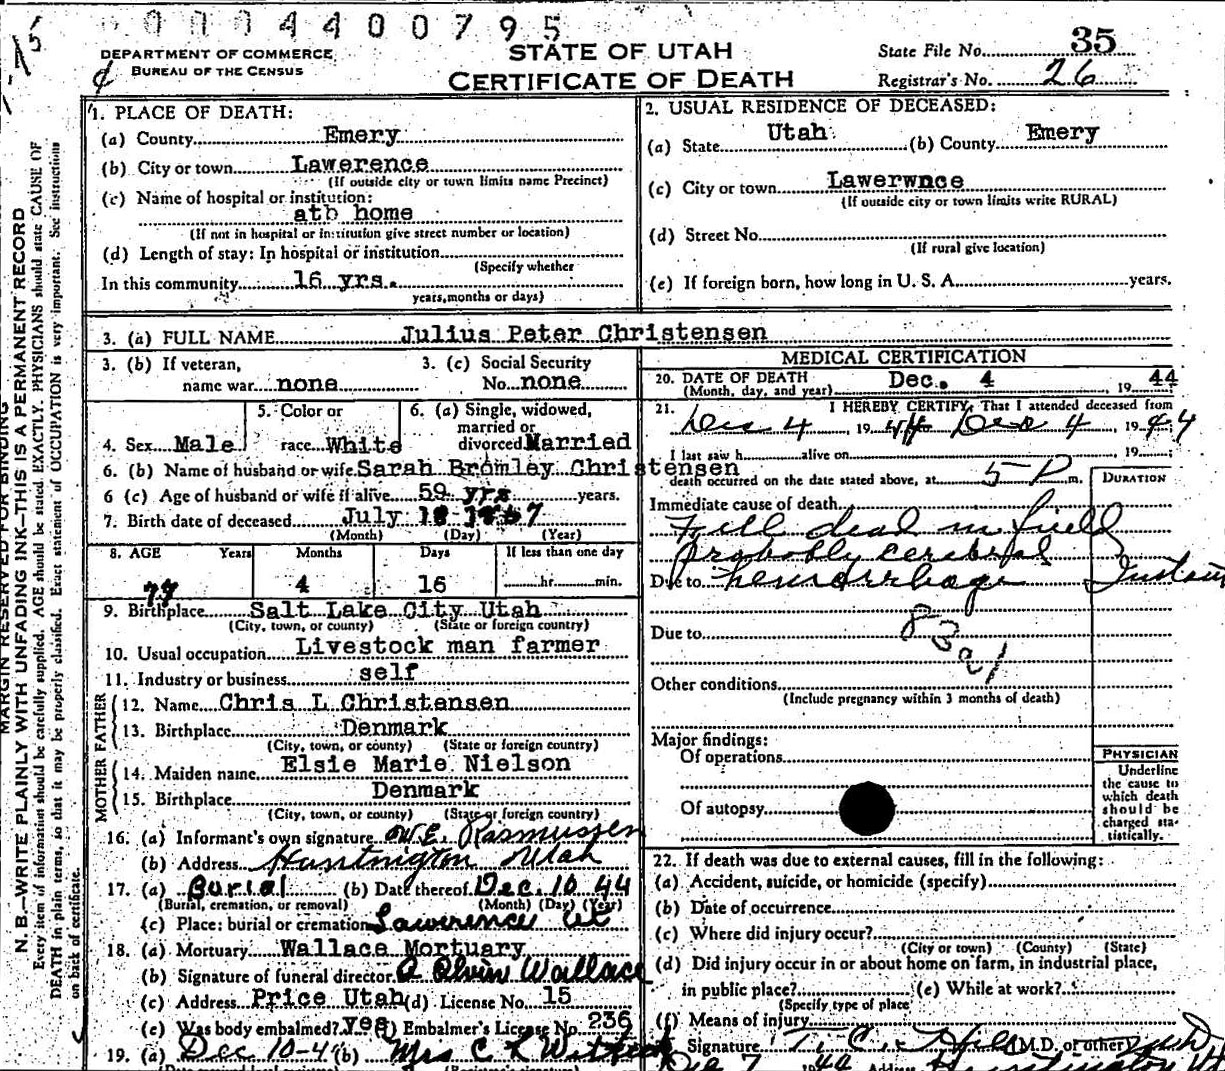 0004400795
DEPARTMENT OF COMMERCE
BUREAU OF THE CENSUS
STATE OF UTAH
CERTIFICATE OF DEATH
State File No. 35
Registrar's No. 26
MARGIN RESERVED FOR BINDING
N. B.—WRITE PLAINLY WITH UNFADING INK—THIS IS A PERMANENT RECORD
Every item of information should be carefully supplied. AGE should be stated EXACTLY. PHYSICIANS should state CAUSE OF
DEATH in plain terms, so that it may be properly classified. Exact statement of OCCUPATION is very important. See instructions
on back of certificate.
1. PLACE OF DEATH:
(a) County Emery
(b) City or town Lawerence
(If outside city or town limits name Precinct)
(c) Name of hospital or institution:
atb home
(If not in hospital or institution give street number or location)
(d) Length of stay: In hospital or institution
(Specify whether
In this community 16 yrs.
years, months or days)
2. USUAL RESIDENCE OF DECEASED:
(a) State Utah (b) County Emery
(c) City or town Lawerwnce
(If outside city or town limits write RURAL)
(d) Street No.
(If rural give location)
(e) If foreign born, how long in U. S. A. years.
3. (a) FULL NAME Julius Peter Christensen
3. (b) If veteran,
name war none
3. (c) Social Security
No. none
4. Sex Male
5. Color or
race White
6. (a) Single, widowed,
married or
divorced Married
6. (b) Name of husband or wife Sarah Bromley Christensen
6 (c) Age of husband or wife if alive 59 yrs years.
7. Birth date of deceased July 18 1867
(Month) (Day) (Year)
8. AGE Years Months Days If less than one day
77 4 16 hr. min.
9. Birthplace Salt Lake City Utah
(City, town, or county) (State or foreign country)
10. Usual occupation Livestock man farmer
11. Industry or business self
FATHER
12. Name Chris L Christensen
13. Birthplace Denmark
(City, town, or county) (State or foreign country)
MOTHER
14. Maiden name Elsie Marie Nielson
15. Birthplace Denmark
(City, town, or county) (State or foreign country)
16. (a) Informant's own signature W.E. Rasmussen
(b) Address Huntington Utah
17. (a) Burial (b) Date thereof Dec. 10 44
(Burial, cremation, or removal) (Month) (Day) (Year)
(c) Place: burial or cremation Lawerence Ut
18. (a) Mortuary Wallace Mortuary
(b) Signature of funeral director Wallace
(c) Address Price Utah (d) License No. 15
(e) Was body embalmed? yes (f) Embalmer's License No. 236
19. (a) Dec 10-44 (b) Mrs C
MEDICAL CERTIFICATION
20. DATE OF DEATH Dec. 4, 1944
(Month, day, and year)
21. I HEREBY CERTIFY, That I attended deceased from
Dec 4, 1944 Dec 4 1944
I last saw h alive on, 19 ;
death occurred on the date stated above, at 5 P m.
DURATION
Immediate cause of death
Fell dead in field
Probably cerebral
Due to hemorrhage
Due to
83a1
Other conditions
(Include pregnancy within 3 months of death)
Major findings:
Of operations
Of autopsy
PHYSICIAN
Underline
the cause to
which death
should be
charged sta-
tistically.
22. If death was due to external causes, fill in the following:
(a) Accident, suicide, or homicide (specify)
(b) Date of occurrence
(c) Where did injury occur?
(City or town) (County) (State)
(d) Did injury occur in or about home on farm, in industrial place,
in public place? (e) While at work?
(Specify type of place)
(f) Means of injury
Signature T. C. Hill (M.D. or other)
Dec 7 1944 Address Huntington